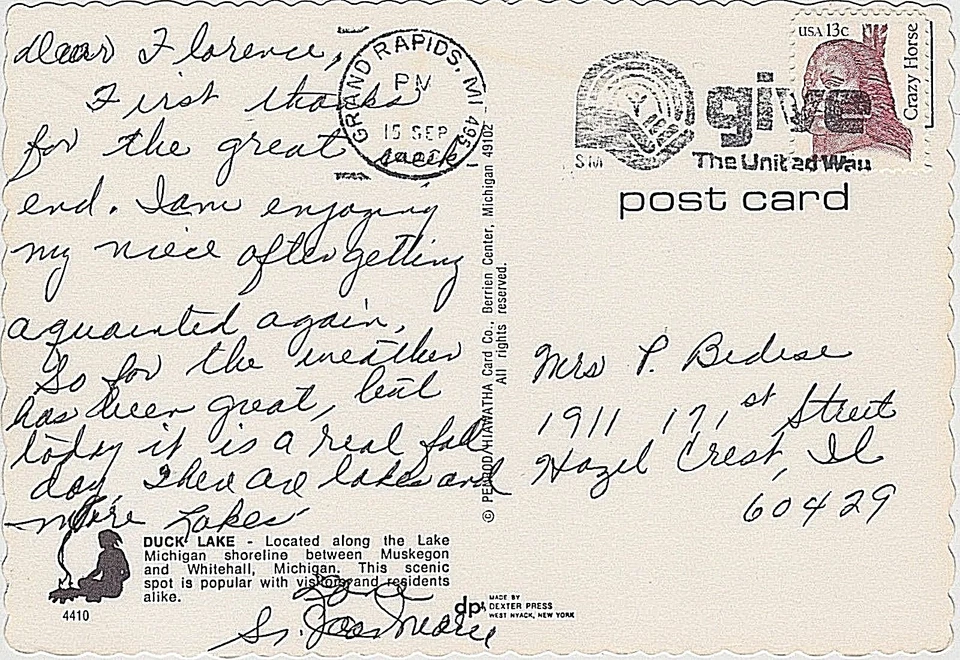 dear Florence,
First thanks
for the great week
end. I am enjoying
my niece after getting
aquainted again.
So far the weather
has been great, but
today it is a real fall
day. There are lakes and
more Lakes
DUCK LAKE - Located along the Lake
Michigan shoreline between Muskegon
and Whitehall, Michigan. This scenic
spot is popular with visitors and residents
alike.
4410
Love
Sr.
GRAND RAPIDS, MI 495
PM
15 SEP
© PENROD/HIAWATHA Card Co., Berrien Center, Michigan 49102
All rights reserved.
dp
MADE BY
DEXTER PRESS
WEST NYACK, NEW YORK
give
SM
The United Way
USA 13c
Crazy Horse
post card
Mrs P. Bedese
1911 171st Street
Hazel Crest, Il
60429